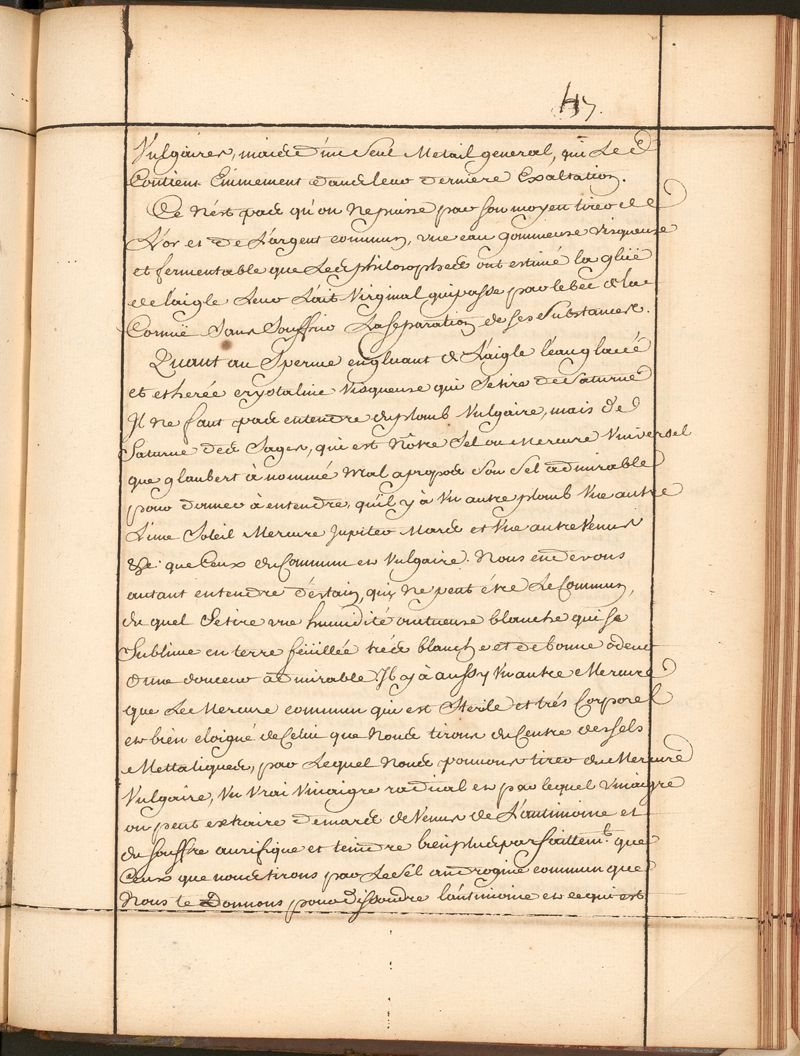 47.
Vulgaires, mais d'un seul Metail general, qui Les
Contient Eminement dans leur derniere Exaltation.
Ce n'est pas qu'on ne puisse par son moyen tirer de
L'or et de L'argent commun, une eau gommeuse visqueuse
et fermentable que Les philosophes ont estimé la gluë
de l'aigle Leur Lait Virginal qui passe par le bec de la
Cornuë Sans Souffrir La separation de ses Substances.
Quant au Sperme engluant de L'aigle l'eau glacée
et etherée crystaline Visqueuse qui Se tire de Saturne
Il ne faut pas entendre du plomb Vulgaire, mais de
Saturne des Sages, qui est Nôtre Sel ou Mercure Universel
que glaubert à nommé mal apropos Son Sel admirable
pour donner à entendre, qu'il y à un autre plomb Une autre
Lune Soleil Mercure Jupiter Mars et Une autre Venus
&c. que Ceux du Commun et Vulgaire. Nous en devons
autant entendre d'Estain, qui Ne peut être Le Commun,
du quel Se tire une humidité onctueuse blanche qui se
Sublime en terre feüillée trés blanche et de bonne odeur
d'une douceur admirable Il y à aussy Un autre Mercure
que Le Mercure commun qui est Sterile et trés Corporel
et bien eloigné de Celui que Nous tirons du Centre des sels
Mettaliques, par Lequel Nous pouvons tirer du Mercure
Vulgaire, Un Vrai Vinaigre radical et par lequel Vinaigre
on peut extraire de mars de Venus de L'antimoine et
du souffre aurifique et teindre bien plus parfaittemt. que
Ceux que nous tirons par Le Sel androgine commun que
Nous te Donnons pour dissoudre L'antimoine et ce qui est